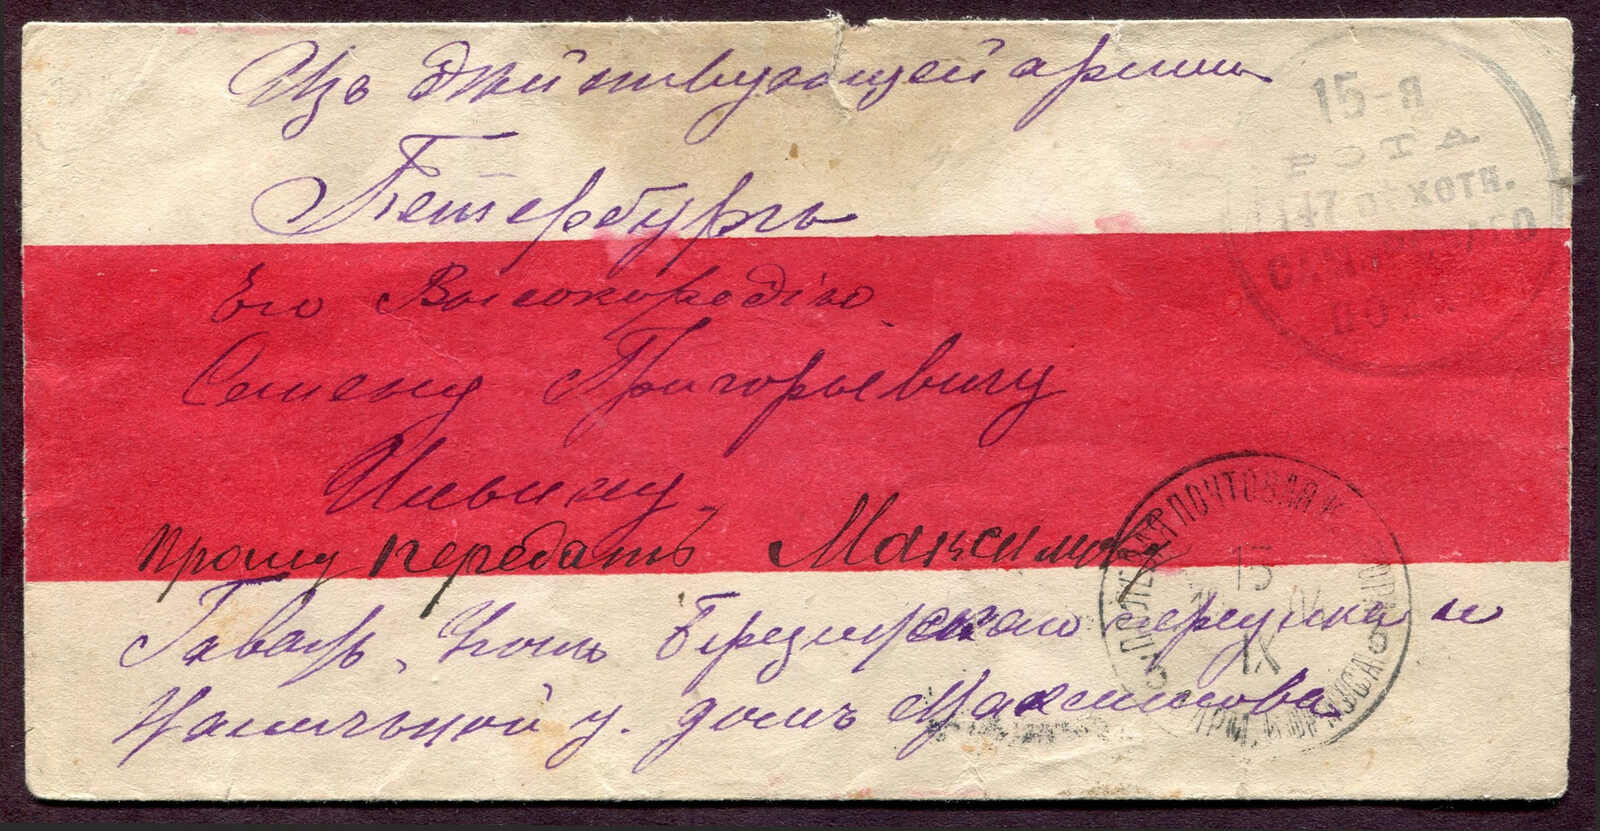 Изъ действующей армiи
Петербургъ
Его Высокородiю
Семену Григорьевичу
Ильину
прошу передать Максимову
Гавань, уголъ Березинскаго переулка и
Наличьной у. домъ Максимова
15-я
РОТА
147 п. хотн.
САМАРСКАГО
ПОЛКА
ПОЛЕВАЯ ПОЧТОВАЯ К
АРМ. КОРПУСА
13
IX
04